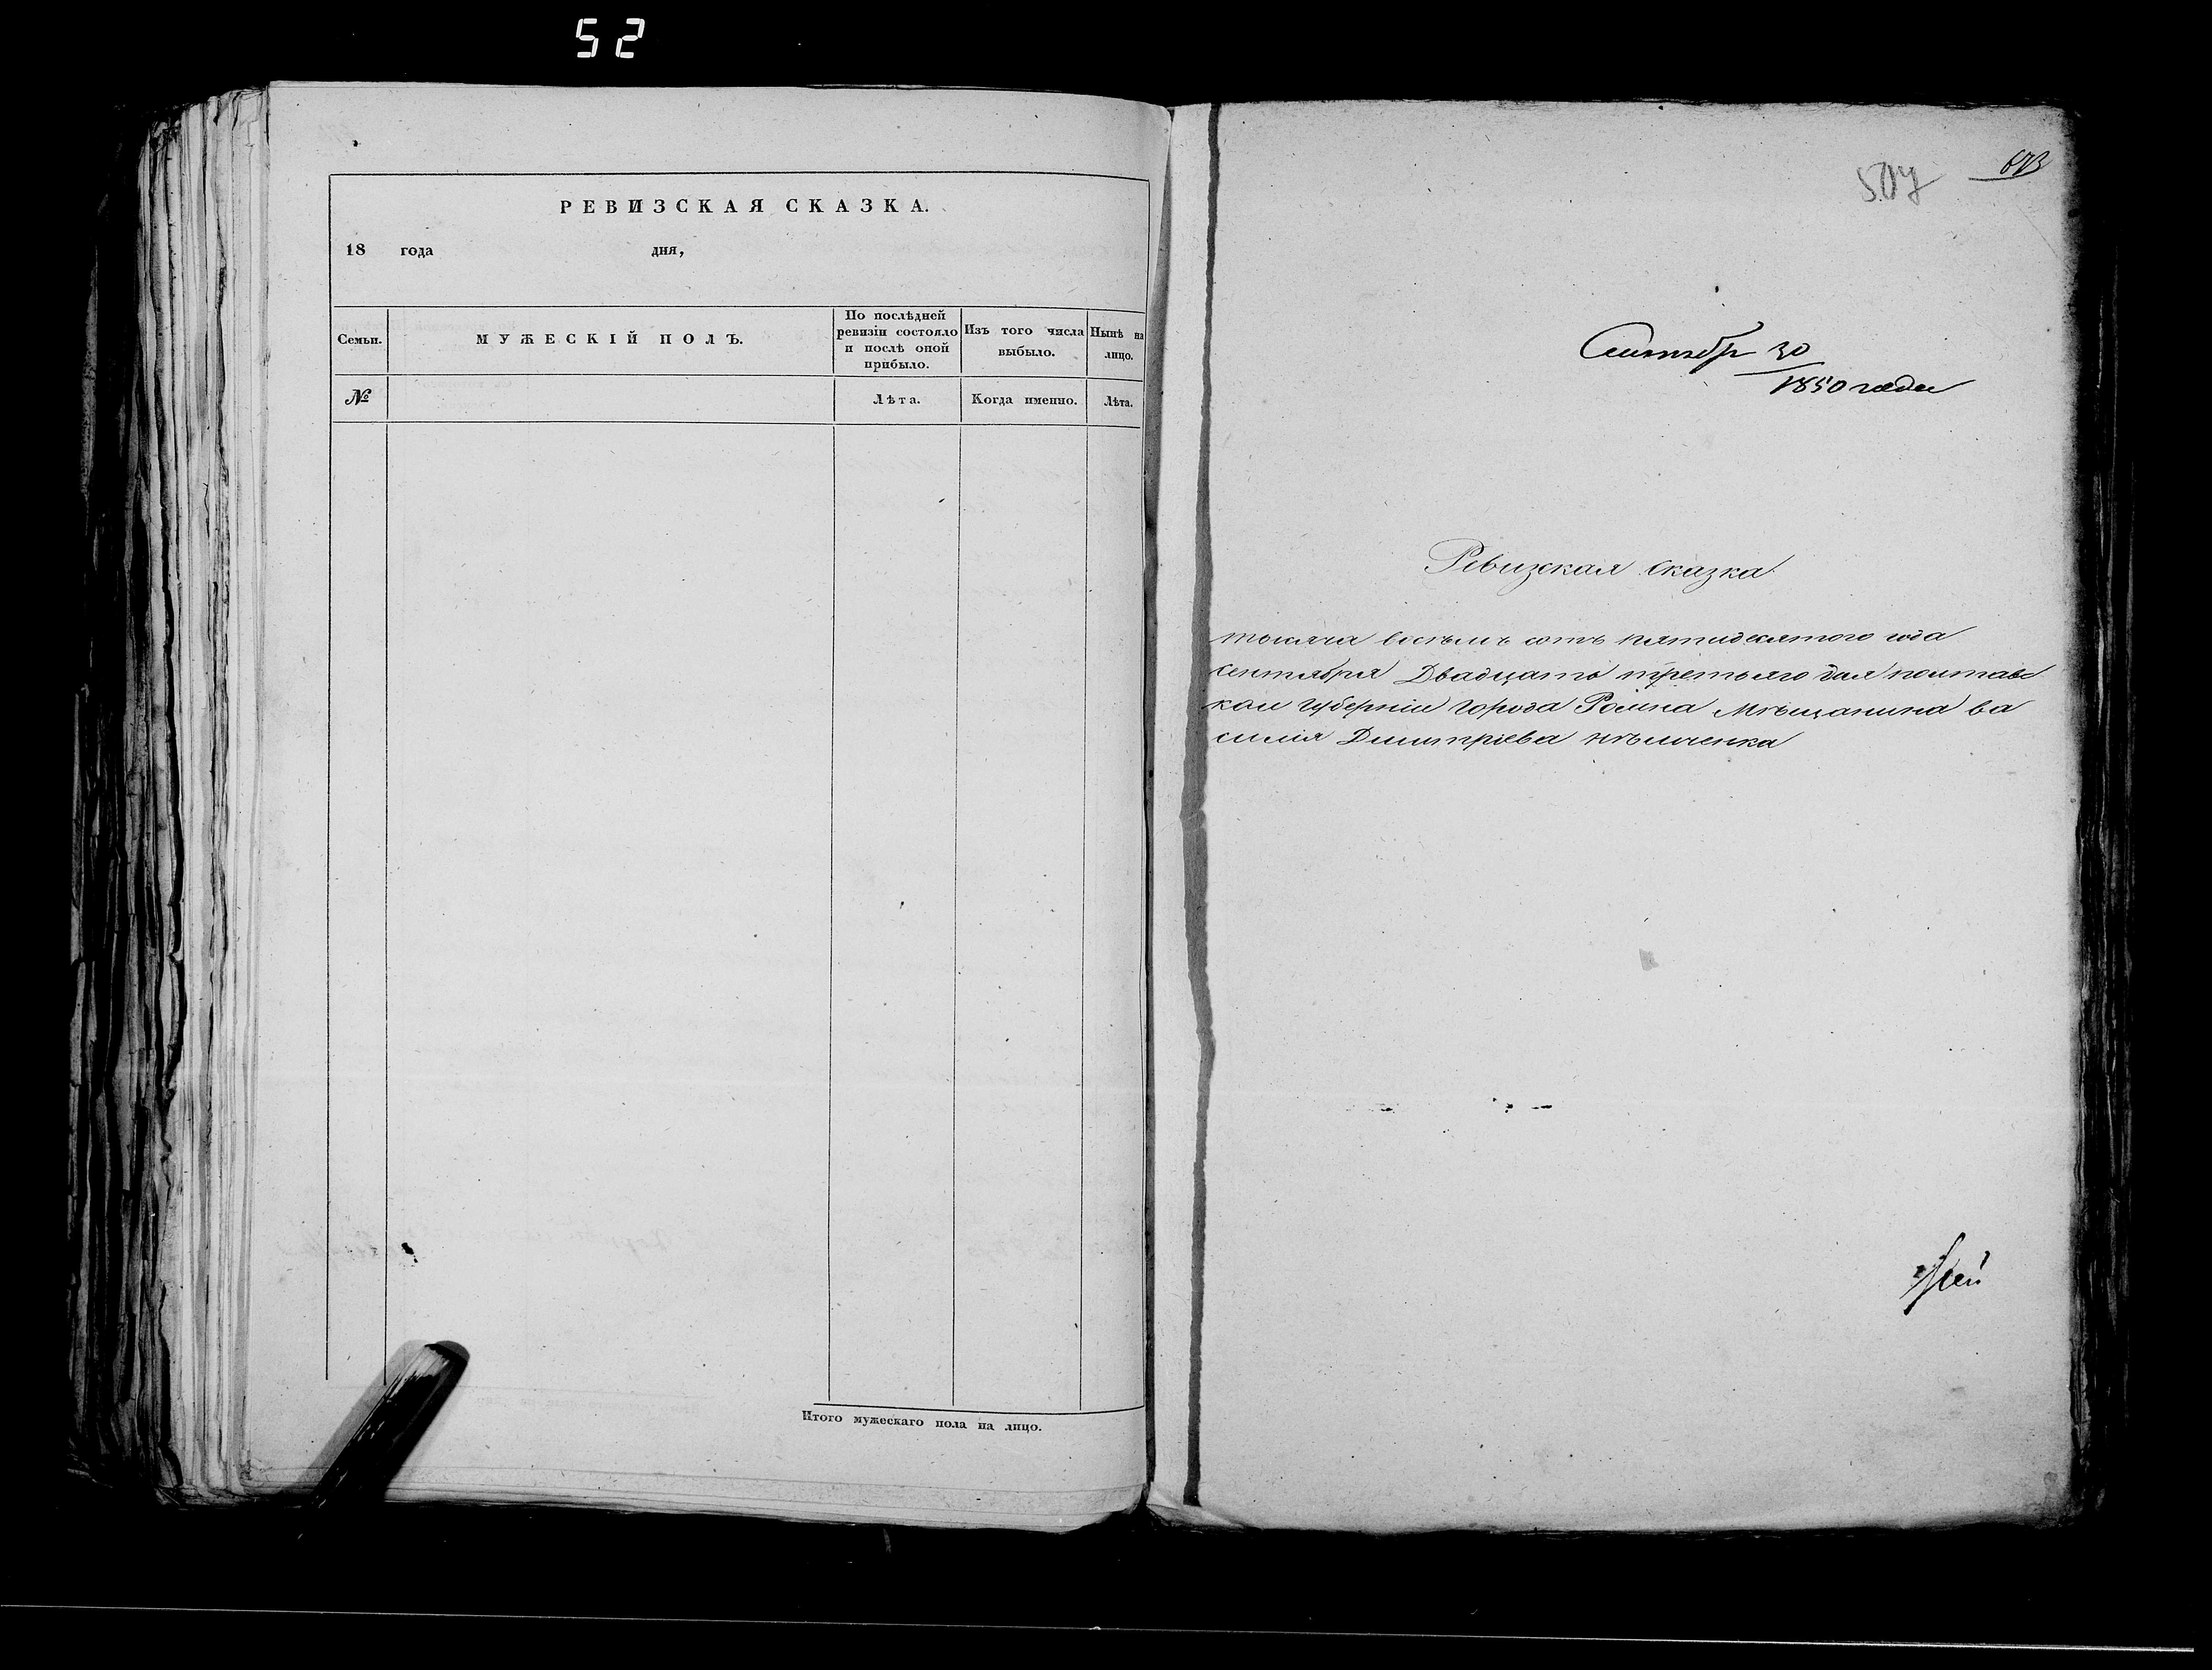 52
РЕВИЗСКАЯ СКАЗКА.
18 года дня,
Семьи.
МУЖЕСКІЙ ПОЛЪ.
По послѣдней
ревизіи состояло
и послѣ оной
прибыло.
Изъ того числа
выбыло.
Нынѣ на
лицо.
№
Лѣта.
Когда именно.
Лѣта.
Итого мужескаго пола на лицо.
Сентябр 30
1850 года
Ревизская сказка
тысяча восемь сотъ пятидесятого года
сентября Двадцать третьяго дня полтавс
кой губерніи города Ромна Мѣщанина ва
силія Димитріева нѣмченка